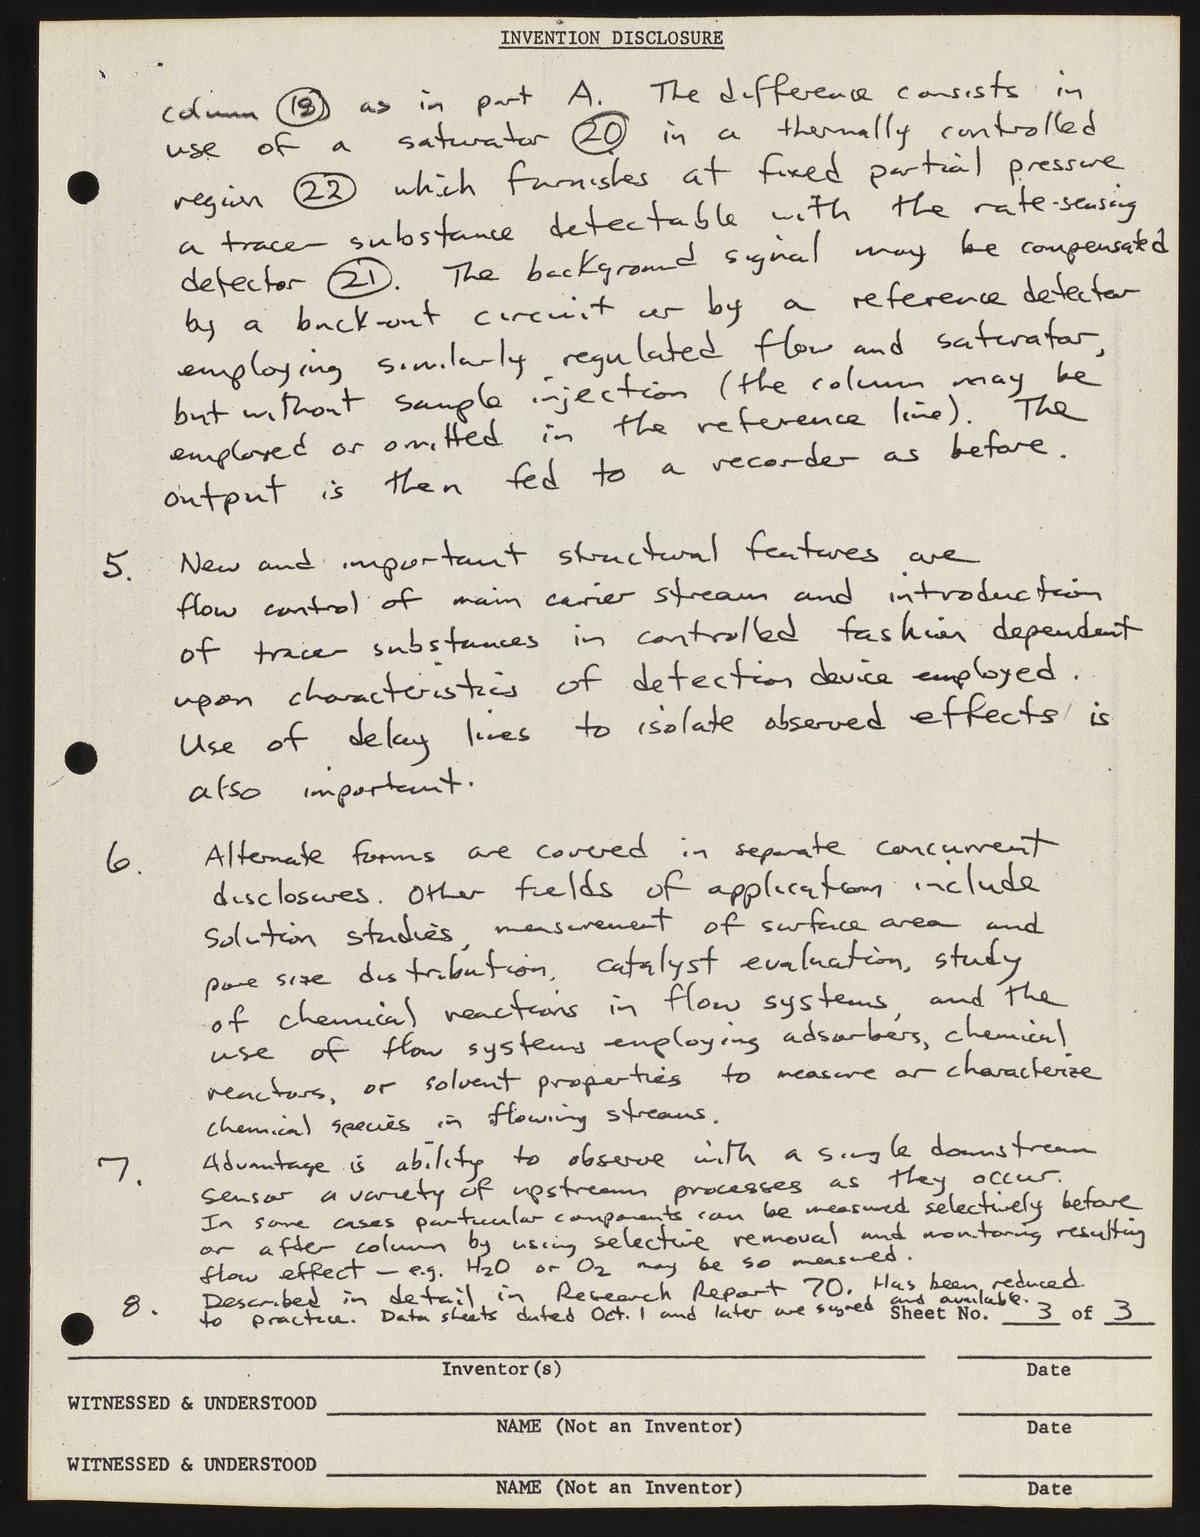 INVENTION DISCLOSURE
column (19) as in part A. The difference consists in
use of a saturator (20) in a thermally controlled
region (22) which furnishes at fixed partial pressure
a tracer substance detectable with the rate-sensing
detector (21). The background signal may be compensated
by a buck-out circuit or by a reference detector
employing similarly regulated flow and saturator,
but without sample injection (the column may be
employed or omitted in the reference line). The
output is then fed to a recorder as before.
5. New and important structural features are
flow control of main carrier stream and introduction
of tracer substances in controlled fashion dependent
upon characteristics of detection device employed.
Use of delay lines to isolate observed effects is
also important.
6. Alternate forms are covered in separate concurrent
disclosures. Other fields of application include
solution studies, measurement of surface area and
pore size distribution, catalyst evaluation, study
of chemical reactions in flow systems, and the
use of flow systems employing adsorbers, chemical
reactors, or solvent properties to measure or characterize
chemical species in flowing streams.
7. Advantage is ability to observe with a single downstream
sensor a variety of upstream processes as they occur.
In some cases particular components can be measured selectively before
or after column by using selective removal and monitoring resulting
flow effect – e.g. H2O or O2 may be so measured.
8. Described in detail in Research Report 70. Has been reduced
to practice. Data sheets dated Oct. 1 and later are signed and available.
Sheet No. 3 of 3
Inventor(s) Date
WITNESSED & UNDERSTOOD
NAME (Not an Inventor) Date
WITNESSED & UNDERSTOOD
NAME (Not an Inventor) Date